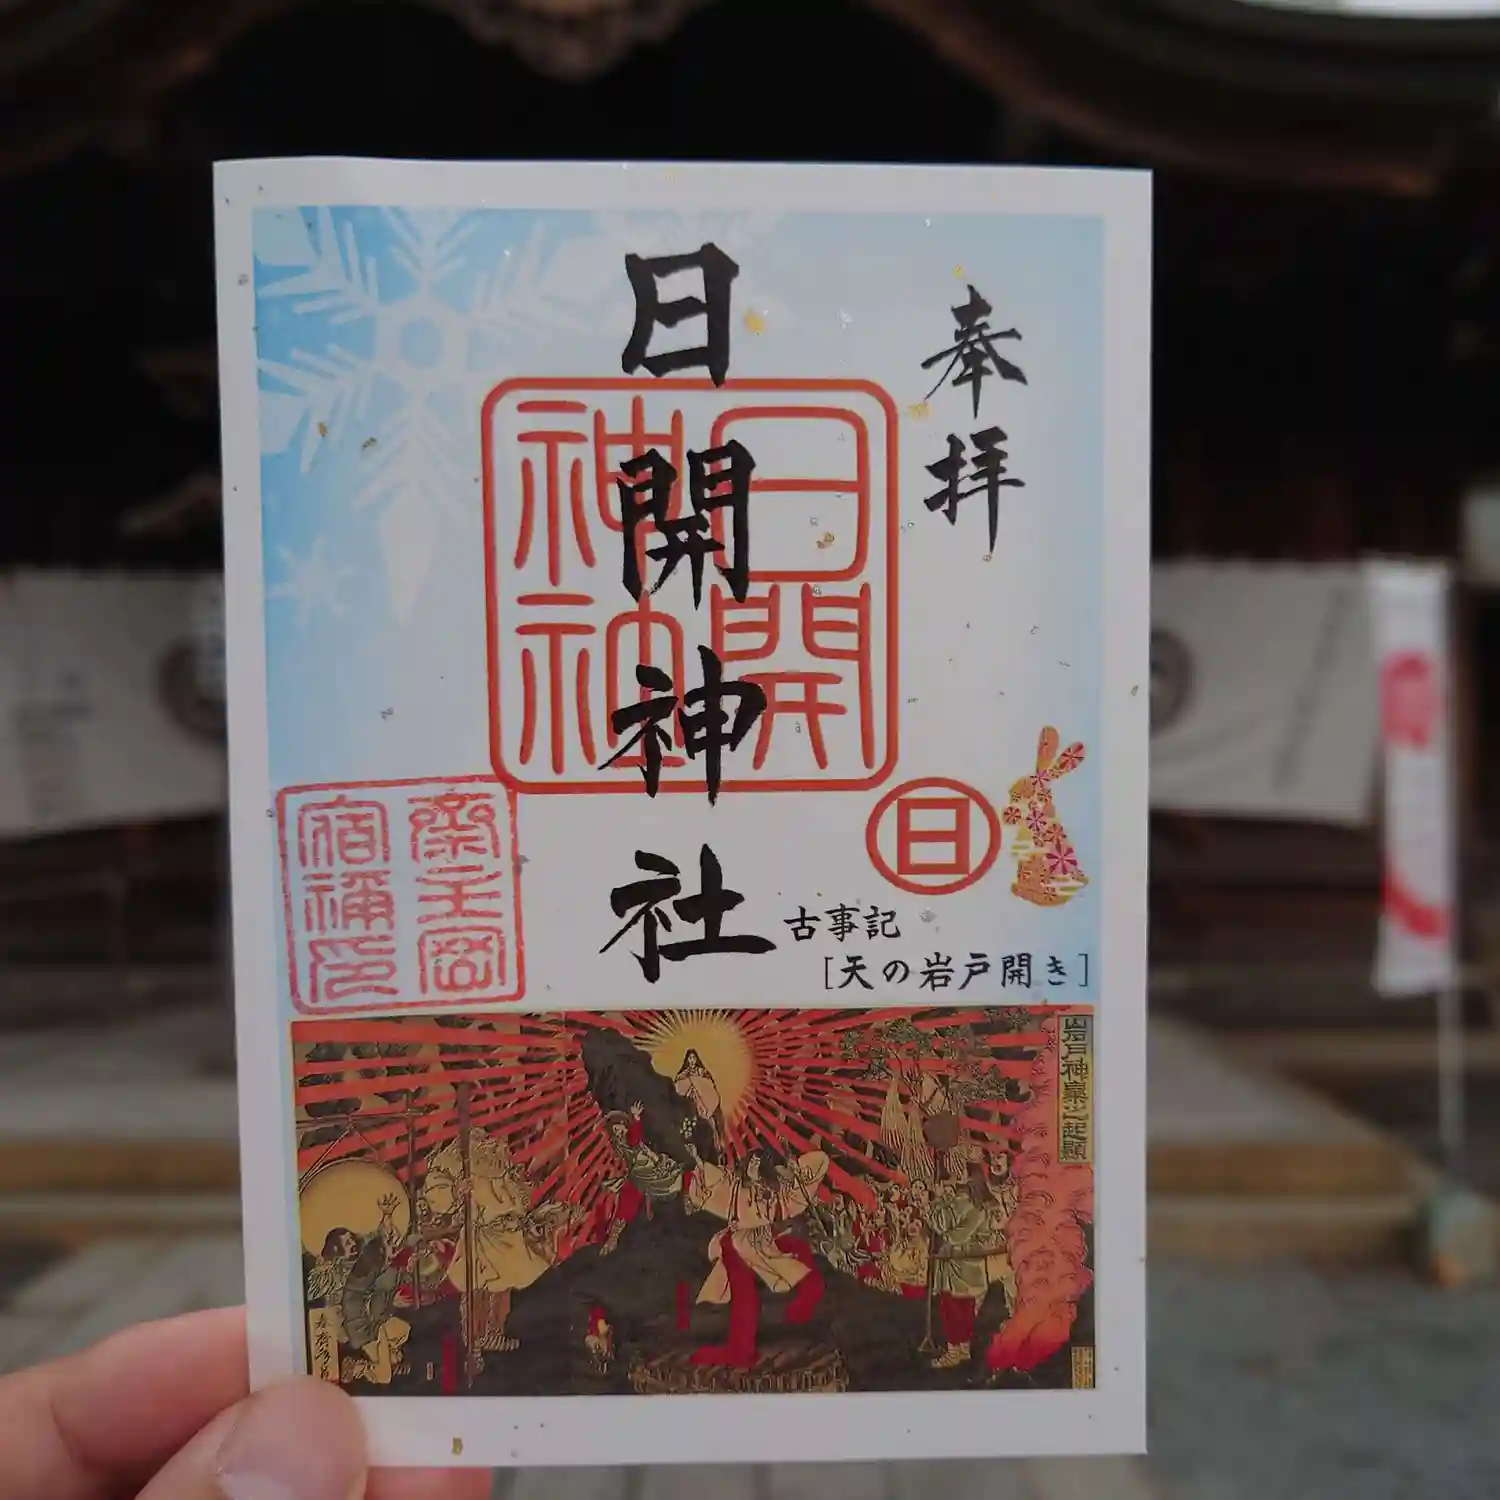 奉拝
日開神社
日開神社
日
古事記
[天の岩戸開き]
岩戸神楽之起顕